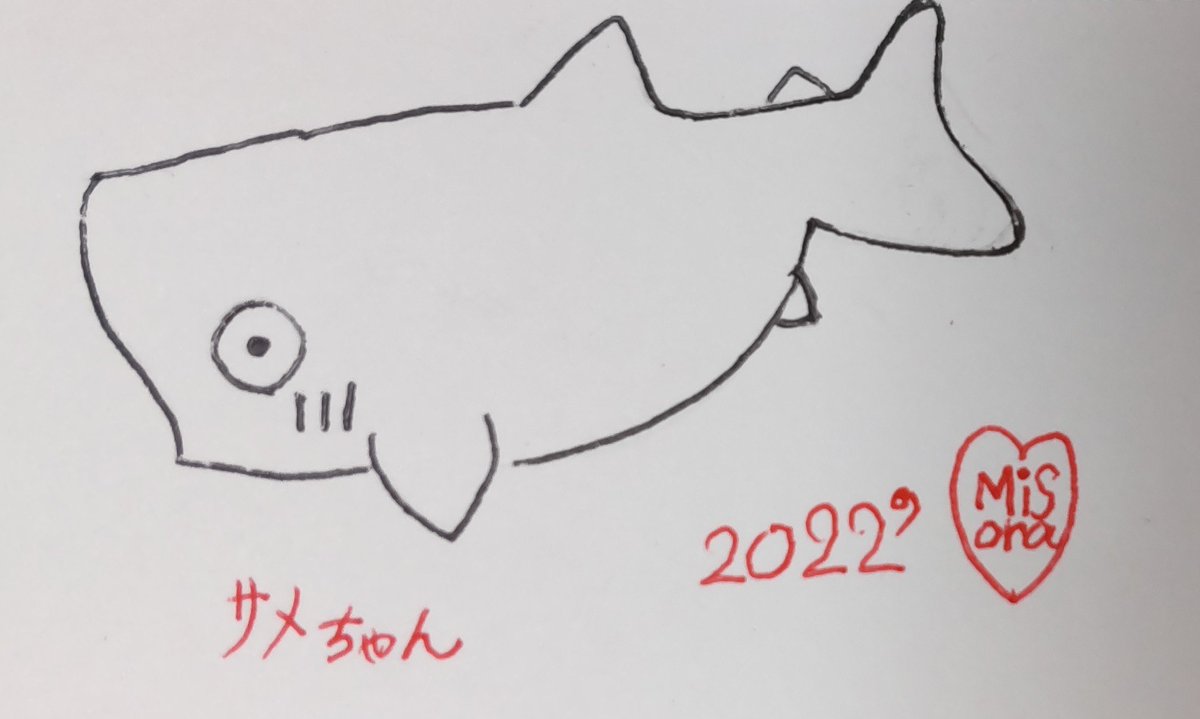 サメちゃん
2022’
Mis
ora